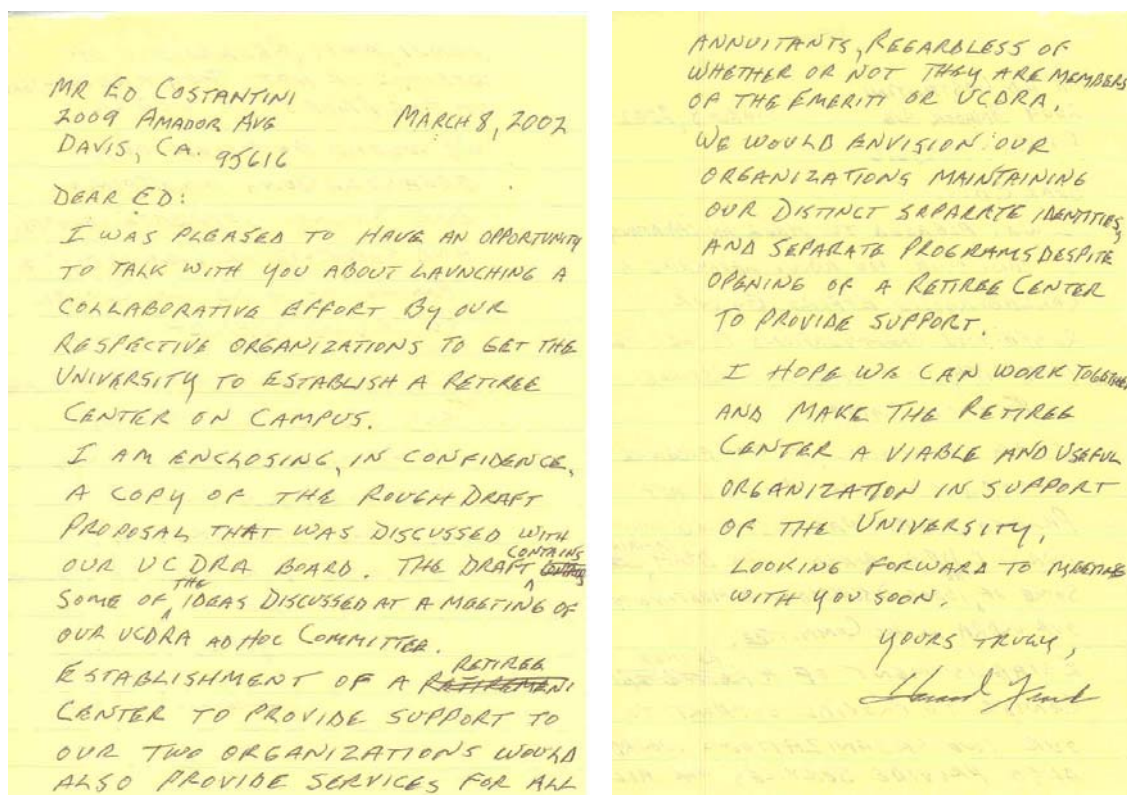 MR ED COSTANTINI
2009 AMADOR AVE MARCH 8, 2002
DAVIS, CA. 95616
DEAR ED:
I WAS PLEASED TO HAVE AN OPPORTUNITY
TO TALK WITH YOU ABOUT LAUNCHING A
COLLABORATIVE EFFORT BY OUR
RESPECTIVE ORGANIZATIONS TO GET THE
UNIVERSITY TO ESTABLISH A RETIREE
CENTER ON CAMPUS.
I AM ENCLOSING, IN CONFIDENCE,
A COPY OF THE ROUGH DRAFT
PROPOSAL THAT WAS DISCUSSED WITH
OUR UCDRA BOARD. THE DRAFT CONTAINS
SOME OF THE IDEAS DISCUSSED AT A MEETING OF
OUR UCDRA AD HOC COMMITTEE.
ESTABLISHMENT OF A RETIREE RETIREMENT
CENTER TO PROVIDE SUPPORT TO
OUR TWO ORGANIZATIONS WOULD
ALSO PROVIDE SERVICES FOR ALL
ANNUITANTS, REGARDLESS OF
WHETHER OR NOT THEY ARE MEMBERS
OF THE EMERITI OR UCDRA.
WE WOULD ENVISION OUR
ORGANIZATIONS MAINTAINING
OUR DISTINCT SEPARATE IDENTITIES,
AND SEPARATE PROGRAMS DESPITE
OPENING OF A RETIREE CENTER
TO PROVIDE SUPPORT.
I HOPE WE CAN WORK TOGETHER
AND MAKE THE RETIREE
CENTER A VIABLE AND USEFUL
ORGANIZATION IN SUPPORT
OF THE UNIVERSITY.
LOOKING FORWARD TO MEETING
WITH YOU SOON.
YOURS TRULY,